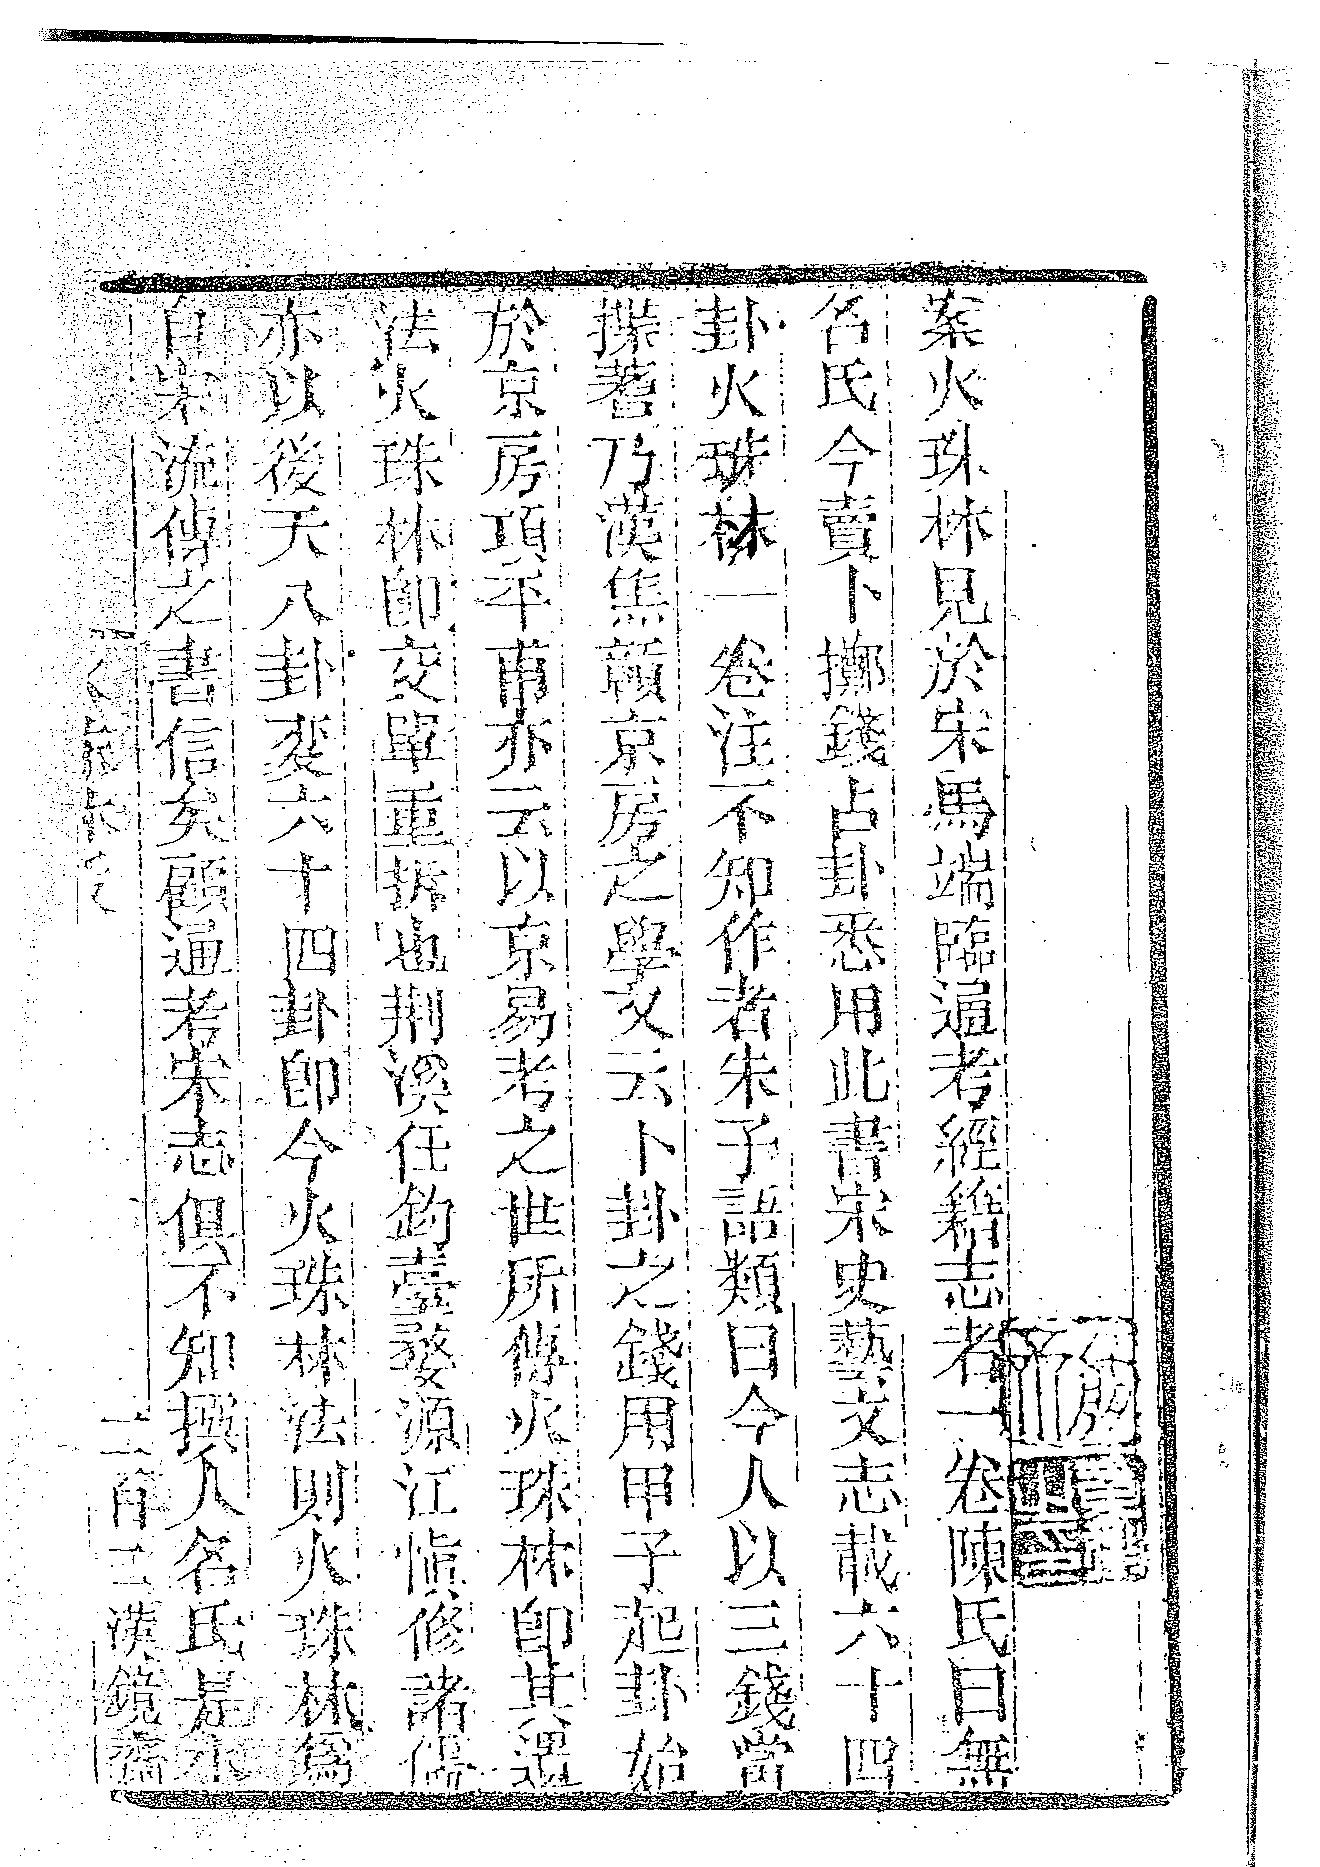 案火珠林見於宋馬端臨通考經籍志者一卷陳氏曰無
名氏今賣卜擲錢占卦悉用此書宋史藝文志載六十四
卦火珠林一卷注不知作者朱子語類曰今人以三錢當
揲蓍乃漢焦贛京房之學又云卜卦之錢用甲子起卦始
於京房項平甫亦云以京易考之世所傳火珠林即其遺
法火珠林即交單重拆也荆溪任釣臺婺源江慎修諸儒
亦以後天八卦変六十四卦即今火珠林法則火珠林為
自宋流傳之書信矣顧通考宋志俱不知撰人名氏是本
二百二漢鏡齋